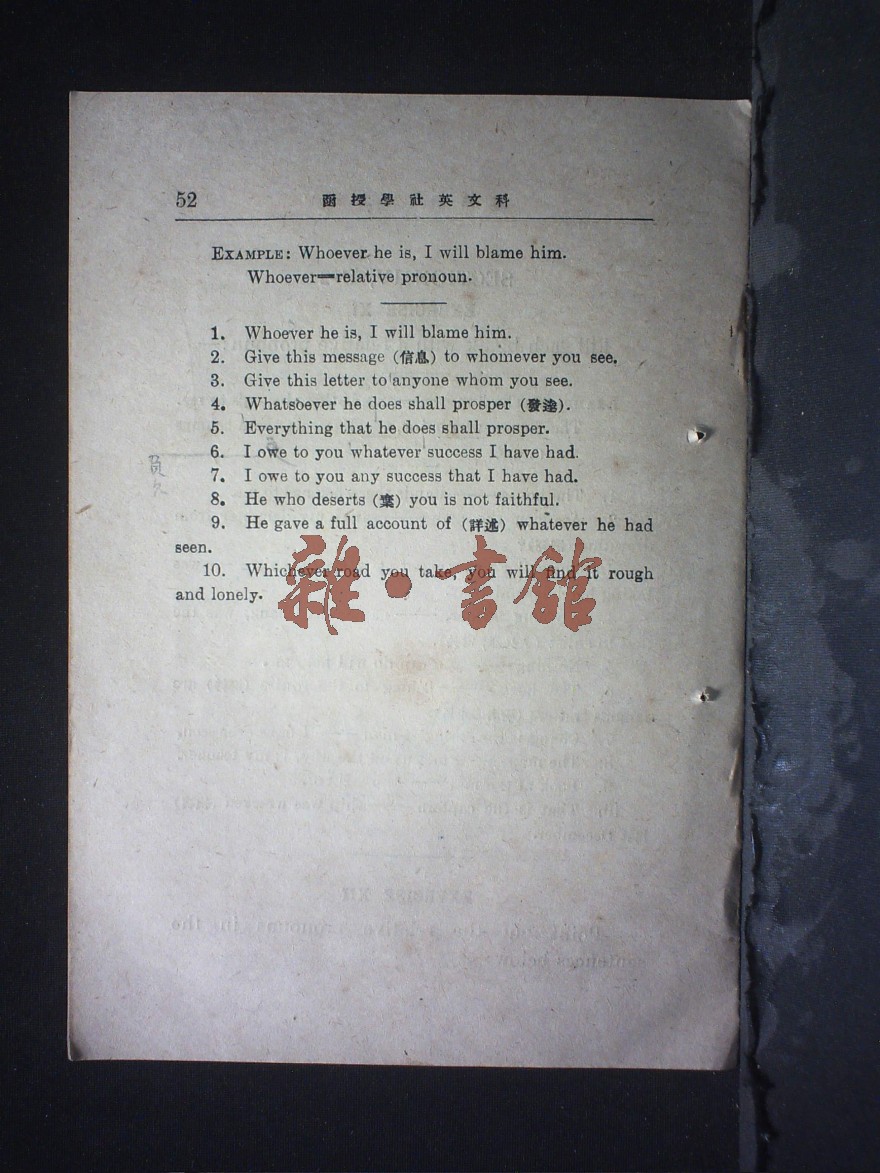 52 函授學社英文科
EXAMPLE: Whoever he is, I will blame him.
Whoever=relative pronoun.
1. Whoever he is, I will blame him.
2. Give this message (信息) to whomever you see.
3. Give this letter to anyone whom you see.
4. Whatsoever he does shall prosper (發達).
5. Everything that he does shall prosper.
6. I owe to you whatever success I have had.
7. I owe to you any success that I have had.
8. He who deserts (棄) you is not faithful.
9. He gave a full account of (詳述) whatever he had
seen.
10. Whichever road you take, you will find it rough
and lonely.
雜·書館